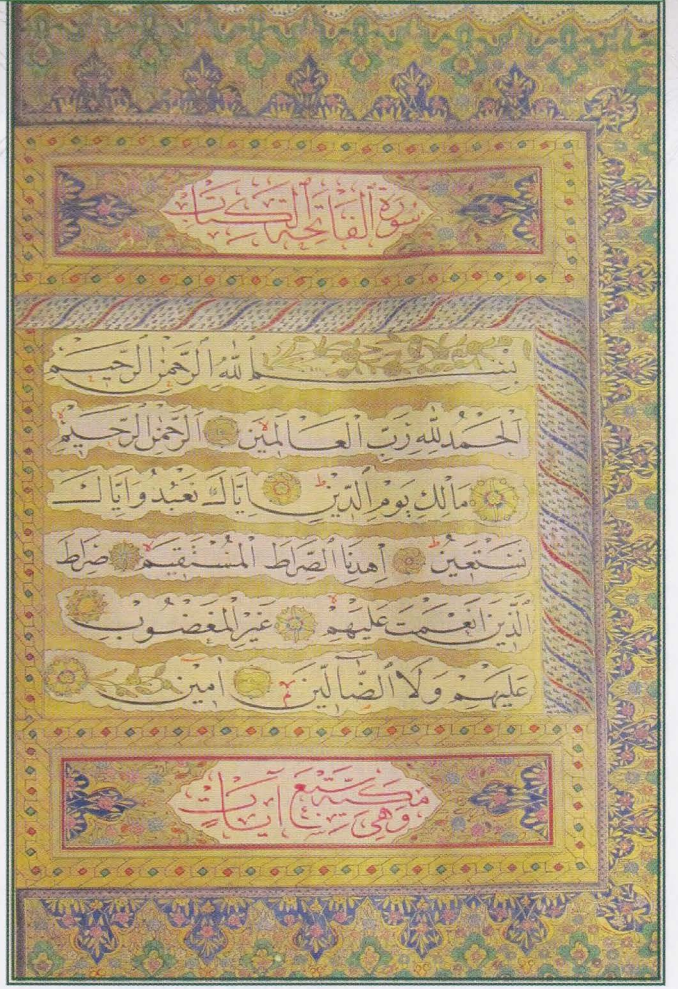 سُورَةُ الفَاتِحَةِ الكِتَابِ
بِسْمِ اللّٰهِ الرَّحْمٰنِ الرَّحِيْمِ
اَلْحَمْدُ لِلّٰهِ رَبِّ الْعَالَمِيْنَ الرَّحْمٰنِ الرَّحِيْمِ
مَالِكِ يَوْمِ الدِّيْنِ اِيَّاكَ نَعْبُدُ وَاِيَّاكَ
نَسْتَعِيْنُ اِهْدِنَا الصِّرَاطَ الْمُسْتَقِيْمَ صِرَاطَ
الَّذِيْنَ اَنْعَمْتَ عَلَيْهِمْ غَيْرِ الْمَغْضُوْبِ
عَلَيْهِمْ وَلَا الضَّالِّيْنَ اٰمِيْن
مَكِّيَّة وَهِيَ سَبْعُ آيَات